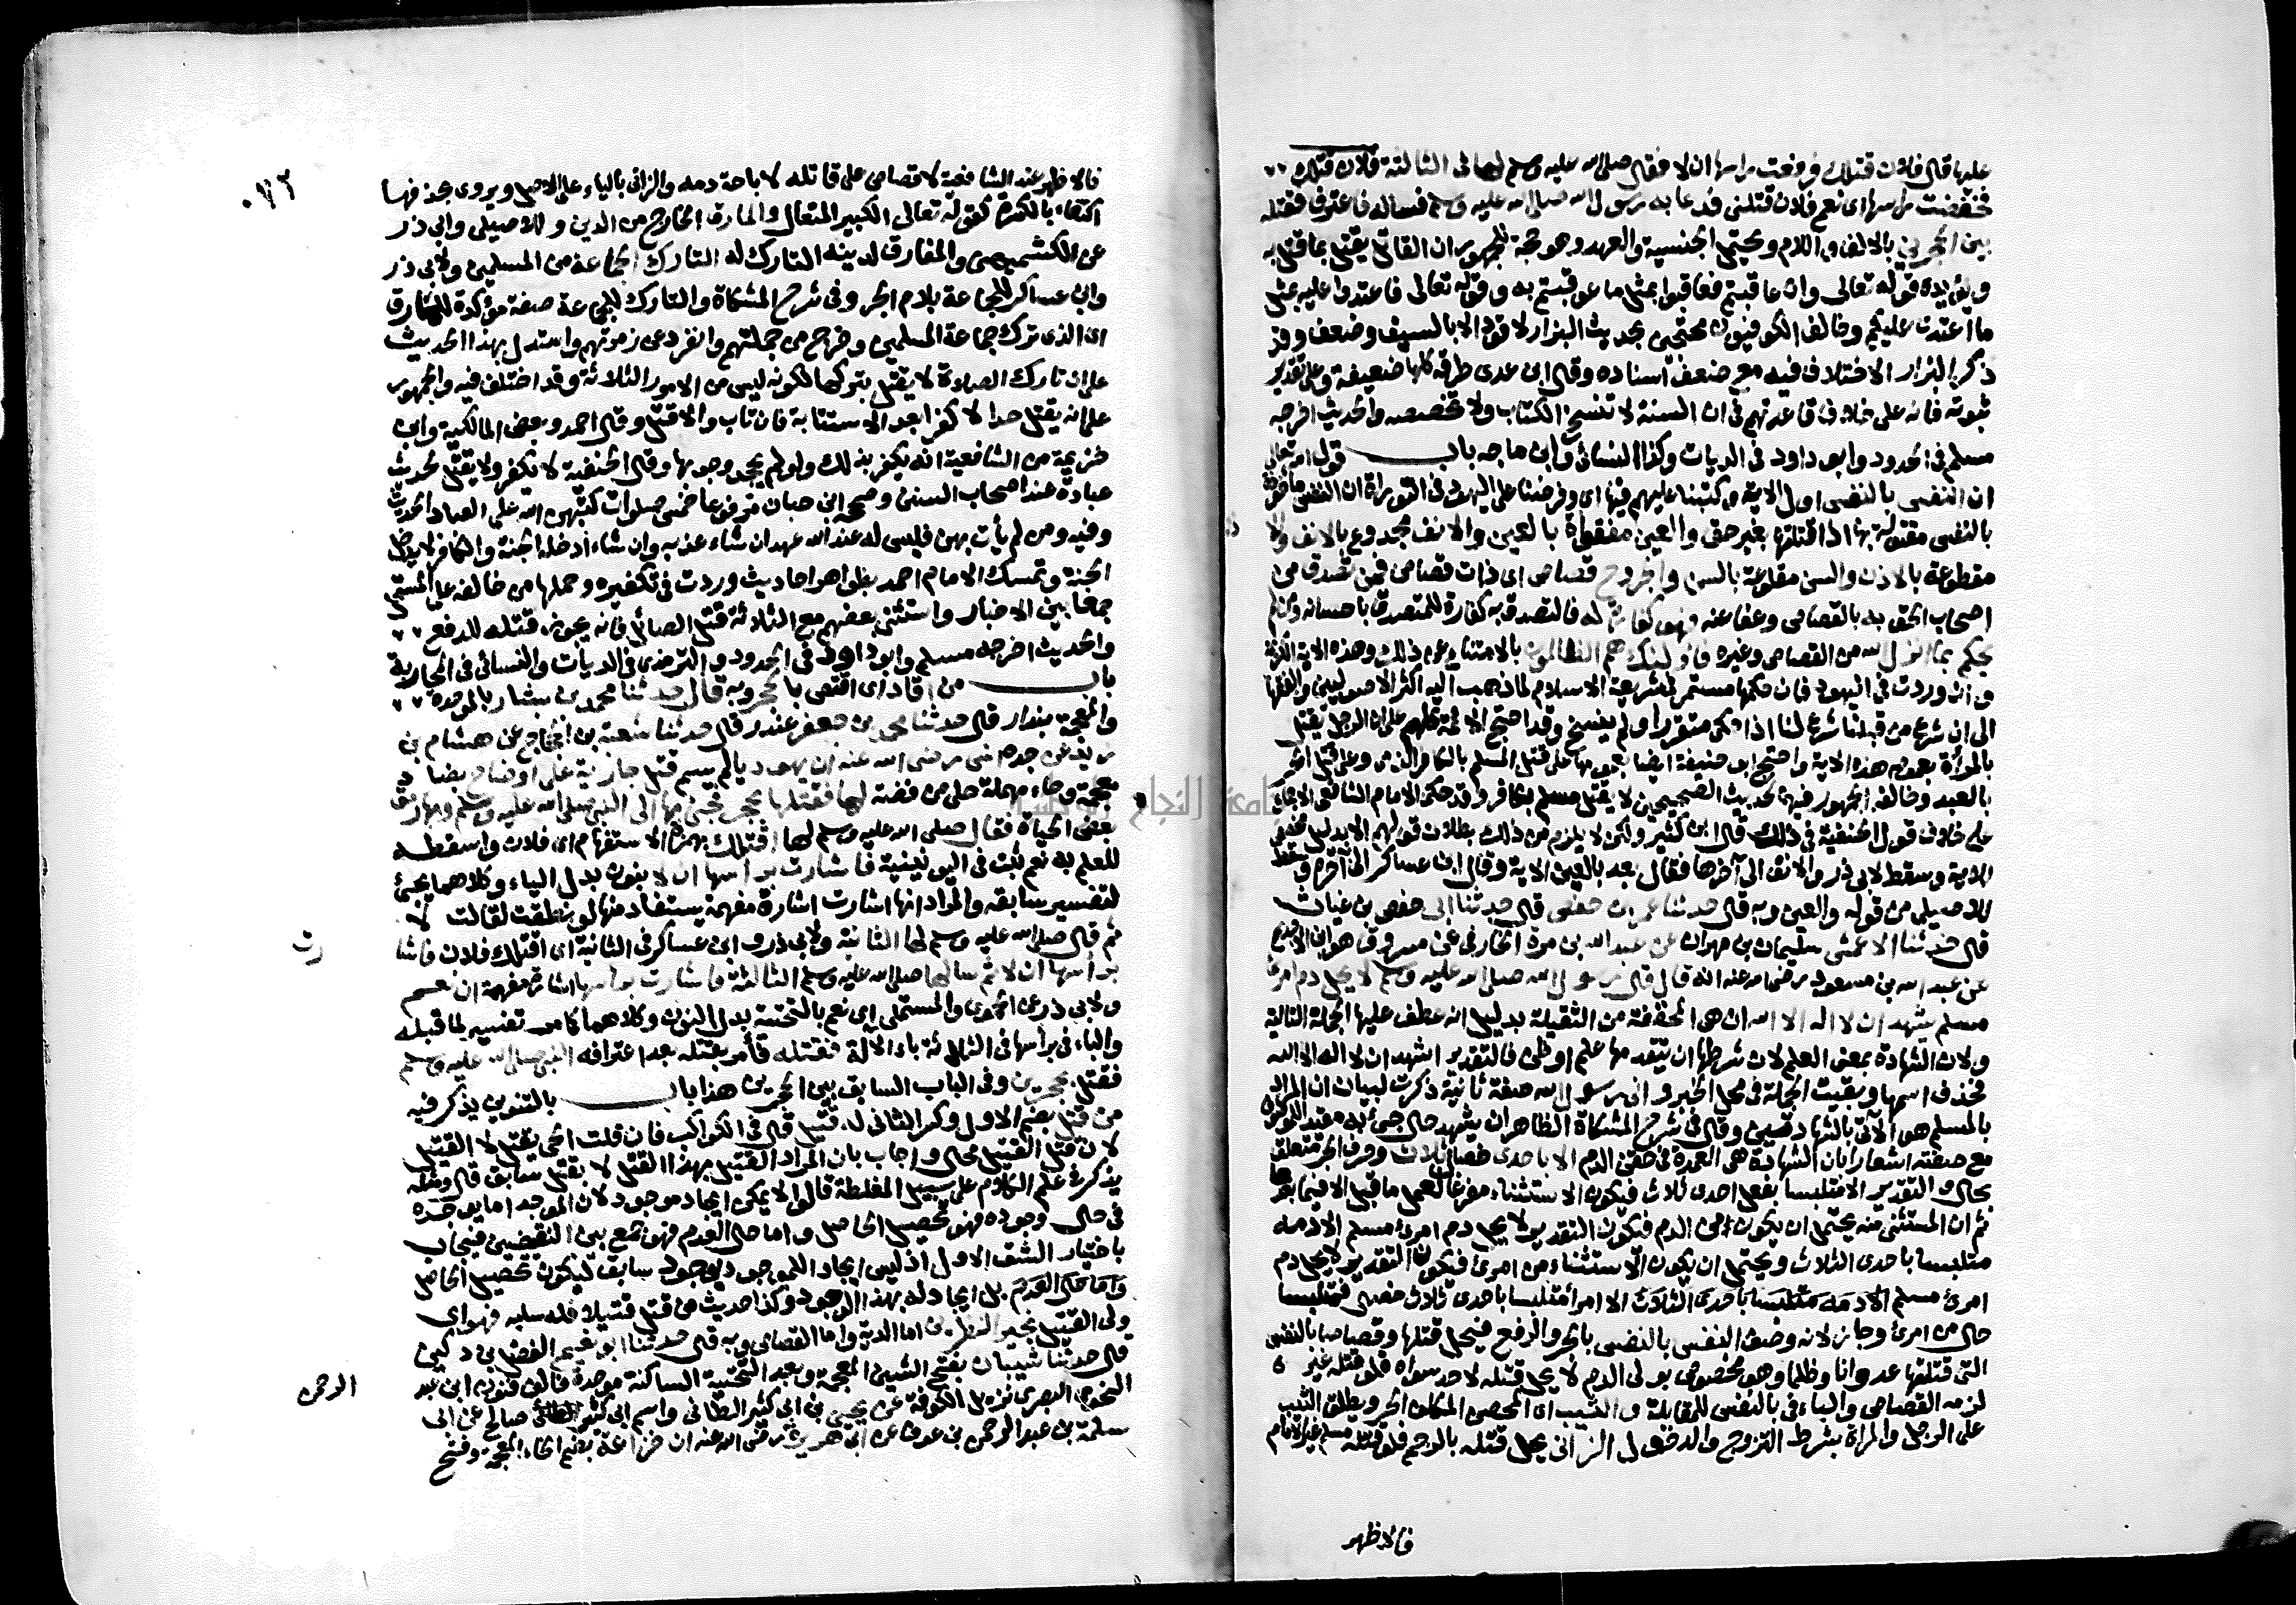 عليها قال فلان قتلك فرفعت راسها ان لا فقال صلى الله عليه وسلم لها في الثالثة فلان قتلك
فخفضت راسها اى نعم فلان قتلنى فدعا به رسول الله صلى الله عليه وسلم فساله فاعترف فقتله
بين الحجرين بالالف واللام ويحتمل الجنسية والعهد وهو حجة للجمهور ان القاتل يقتل بما قتل به
ويؤيده قوله تعالى وان عاقبتم فعاقبوا بمثل ما عوقبتم به وقوله تعالى فاعتدوا عليه بمثل
ما اعتدى عليكم وخالف الكوفيون محتجين بحديث البزار لا قود الا بالسيف وضعف وقد
ذكر البزار الاختلاف فيه مع ضعف اسناده وقال ابن عدى طرقه كلها ضعيفة وعلى تقدير
ثبوته فانه على خلاف قاعدتهم فى ان السنة لا تنسخ الكتاب ولا تخصصه والحديث اخرجه
مسلم فى الحدود وابو داود فى الديات وكذا النسائى وابن ماجه باب قول الله تعالى
ان النفس بالنفس اول الاية وكتبنا عليهم فيها اى وفرضنا على اليهود فى التوراة ان النفس ماخوذة
بالنفس مقتولة بها اذا قتلتها بغير حق والعين مفقوأة بالعين والانف مجدوع بالانف والاذن
مقطوعة بالاذن والسن مقلوعة بالسن والجروح قصاص اى ذات قصاص فمن تصدق من
اصحاب الحق به بالقصاص وعفا عنه فهو كفارة له فالتصدق به كفارة للمتصدق باحسانه ومن لم
يحكم بما انزل الله من القصاص وغيره فاولئك هم الظالمون بالامتناع عن ذلك وهذه الاية الكريمة
وان وردت فى اليهود فان حكمها مستمر لشريعة الاسلام لما ذهب اليه اكثر الاصوليين والفقها
الى ان شرع من قبلنا شرع لنا اذا حكى متقررا ولم ينسخ وقد احتج الائمة كلهم على ان الرجل يقتل
بالمراة بعموم هذه الاية واحتج ابو حنيفة ايضا بعمومها على قتل المسلم بالكافر الذمى وعلى قتل الحر
بالعبد وخالفه الجمهور فيهما لحديث الصحيحين لا يقتل مسلم بكافر وقد حكى الامام الشافعى الاجماع
على خلاف قول الحنفية فى ذلك قال ابن كثير ولكن لا يلزم من ذلك بطلان قولهم الا بدليل مخصص
للاية وسقط لابى ذر والانف الى آخرها فقال بعد بالعين الاية وقال ابن عساكر الى آخره وسقط
للاصيلى من قوله والعين وبه قال حدثنا عمر بن حفص قال حدثنا ابى حفص بن غياث
قال حدثنا الاعمش سليمان بن مهران عن عبد الله بن مرة الخارفى عن مسروق هو ابن الاجدع
عن عبد الله بن مسعود رضى الله عنه انه قال قال رسول الله صلى الله عليه وسلم لا يحل دم امرئ
مسلم يشهد ان لا اله الا الله ان هى المخففة من الثقيلة بدليل انه عطف عليها الجملة التالية
ولان الشهادة بمعنى العلم لان شرطها ان يتقدمها علم او ظن فالتقدير اشهد ان لا اله الا الله
فحذف اسمها وبقيت الجملة فى محل الخبر وانى رسول الله صفة ثانية ذكرت لبيان ان المراد
بالمسلم هو الآتى بالشهادتين وقال فى شرح المشكاة الظاهر ان يشهد حال جئ به مقيد للموصوف
مع صفته اشعارا بان الشهادة هى العمدة فى حقن الدم الا باحدى خصال ثلاث وحرف الجر متعلق
بحال والتقدير الا متلبسا بفعل احدى ثلاث فيكون الاستثناء مفرغا لعمل ما قبل الا فيما بعدها
ثم ان المستثنى منه يحتمل ان يكون من الدم فيكون التقدير لا يحل دم امرئ مسلم الا دمه
متلبسا باحدى الثلاث ويحتمل ان يكون الاستثناء من امرئ فيكون التقدير لا يحل دم
امرئ مسلم الا دمه متلبسا باحدى الثلاث الا امرأ متلبسا باحدى ثلاث خصال فمتلبسا
حال من امرئ وجاز لانه وصف النفس بالنفس بالجر والرفع فيحل قتلها قصاصا بالنفس
التى قتلتها عدوانا وظلما وهو مخصوص بولى الدم لا يحل قتله لاحد سواه فلو قتله غيره
لزمه القصاص والباء فى بالنفس للمقابلة والثيب اى المحصن المكلف الحر ويطلق الثيب
على الرجل والمراة بشرط التزوج والدخول الزانى يحل قتله بالرجم فلو قتله مسلم غير الامام
فالاظهر
٠٧٣
فالاظهر عند الشافعية لا قصاص على قاتله لاباحة دمه والزانى بالياء على الاصل ويروى بحذفها
اكتفاء بالكسرة كقوله تعالى الكبير المتعال والمارق الخارج من الدين وللاصيلى وابى ذر
عن الكشميهنى والمفارق لدينه التارك له التارك الجماعة من المسلمين ولابى ذر
وابن عساكر للجماعة بلام الجر وفى شرح المشكاة والتارك للجماعة صفة مؤكدة للمارق
اى الذى ترك جماعة المسلمين وخرج من جملتهم وانفرد عن زمرتهم واستدل بهذا الحديث
على ان تارك الصلاة لا يقتل بتركها لكونه ليس من الامور الثلاثة وقد اختلف فيه والجمهور
على انه يقتل حدا لا كفرا بعد الاستتابة فان تاب والا قتل وقال احمد وبعض المالكية وابن
خزيمة من الشافعية انه يكفر بذلك ولو لم يجحد وجوبها وقال الحنفية لا يكفر ولا يقتل لحديث
عبادة عند اصحاب السنن وصححه ابن حبان مرفوعا خمس صلوات كتبهن الله على العباد الحديث
وفيه ومن لم يأت بهن فليس له عند الله عهد ان شاء عذبه وان شاء ادخله الجنة والكافر لا يدخل
الجنة وتمسك الامام احمد بظواهر احاديث وردت فى تكفيره وحملها من خالفه على المستحل
جمعا بين الاخبار واستثنى بعضهم مع الثلاثة قتل الصائل فانه يجوز قتله للدفع
والحديث اخرجه مسلم وابو داود فى الحدود والترمذى فى الديات والنسائى فى المحاربة
باب من اقاد اى اقتص بالحجر وبه قال حدثنا محمد بن بشار بالموحدة
والمعجمة بندار قال حدثنا محمد بن جعفر غندر قال حدثنا شعبة بن الحجاج عن هشام بن
زيد عن جده انس رضى الله عنه ان يهوديا لم يسم قتل جارية على اوضاح بضاد
معجمة وحاء مهملة حلى من فضة لها فقتلها بحجر فجئ بها الى النبى صلى الله عليه وسلم وبها رمق
بعض الحياة فقال صلى الله عليه وسلم لها اقتلك بهمزة الاستفهام اى فلان واسقطه
للعلم به نعم ثبت فى اليونينية فاشارت برأسها ان لا بنون بدل الياء وكلاهما يجئ
لتفسير سابقه والمراد انها اشارت اشارة مفهمة يستفاد منها لو نطقت لقالت لا
ثم قال صلى الله عليه وسلم لها الثانية ولابى ذر وابن عساكر فى الثانية اى اقتلك فلان فاشا
رت
برأسها ان لا ثم سالها صلى الله عليه وسلم الثالثة فاشارت برأسها اشارة مفهمة ان نعم
ولابى ذر عن الحموى والمستملى اى نعم بالتحتية بدل النون وكلاهما كما مر تفسير لما قبله
والباء فى برأسها فى الثلاثة باء الآلة فقتله فأمر بقتله بعد اعترافه النبى صلى الله عليه وسلم
فقتل بحجرين وفى الباب السابق بين الحجرين هذا باب بالتنوين يذكر فيه
من قتل بضم الاول وكسر الثانى له قتيل قال فى الكواكب فان قلت الحى يقتل لا القتيل
لان قتل القتيل محال واجاب بان المراد القتيل بهذا القتل لا بقتل سابق قال ومثله
يذكر فى علم الكلام على سبيل المغلطة قالوا لا يمكن ايجاد موجود لان الموجد اما يوجده
فى حال وجوده فهو تحصيل الحاصل واما حال العدم فهو جمع بين النقيضين فيجاب
باختيار الشق الاول اذ ليس ايجادا للموجود بوجود سابق ليكون تحصيل الحاصل
واما حال العدم بل ايجاد له بهذا الوجود وكذا حديث من قتل قتيلا فله سلبه فهو اى
ولى القتيل بخير النظرين اما الدية واما القصاص وبه قال حدثنا ابو نعيم الفضل بن دكين
قال حدثنا شيبان بفتح الشين المعجمة وبعد التحتية الساكنة موحدة فالف فنون ابن عبد
الرحمن
النحوى البصرى نزيل الكوفة عن يحيى بن ابى كثير الطائى واسم ابى كثير الطائى صالح عن ابى
سلمة بن عبد الرحمن بن عوف عن ابى هريرة رضى الله عنه ان خزاعة بضم الخاء المعجمة وفتح